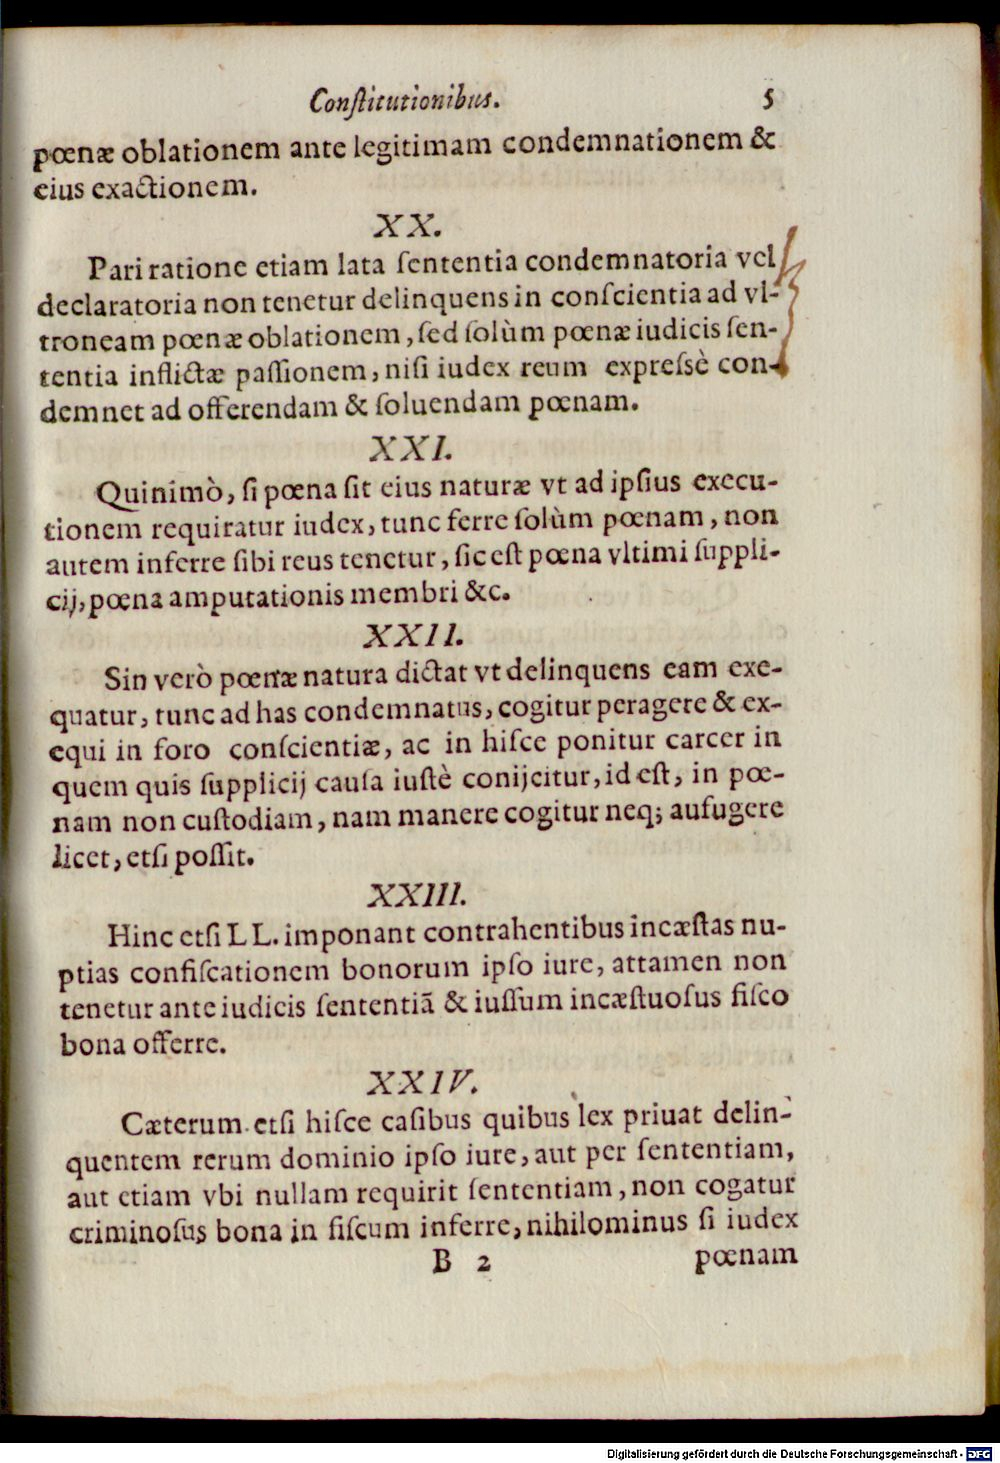 Conſtitutionibus. 5
pœnæ oblationem ante legitimam condemnationem &
eius exactionem.
XX.
Pari ratione etiam lata ſententia condemnatoria vel
declaratoria non tenetur delinquens in conſcientia ad vl-
troneam pœnæ oblationem, ſed ſolùm pœnæ iudicis ſen-
tentia inflictæ paſſionem, niſi iudex reum expreſsè con-
demnet ad offerendam & ſoluendam pœnam.
XXI.
Quinimò, ſi pœna ſit eius naturæ vt ad ipſius execu-
tionem requiratur iudex, tunc ferre ſolùm pœnam, non
autem inferre ſibi reus tenetur, ſic eſt pœna vltimi ſuppli-
cij, pœna amputationis membri &c.
XXII.
Sin verò pœnæ natura dictat vt delinquens eam exe-
quatur, tunc ad has condemnatus, cogitur peragere & ex-
equi in foro conſcientiæ, ac in hiſce ponitur carcer in
quem quis ſupplicij cauſa iuſtè conijcitur, id eſt, in pœ-
nam non cuſtodiam, nam manere cogitur neq; aufugere
licet, etſi poſſit.
XXIII.
Hinc etſi LL. imponant contrahentibus incæſtas nu-
ptias confiſcationem bonorum ipſo iure, attamen non
tenetur ante iudicis ſententiã & iuſſum incæſtuoſus fiſco
bona offerre.
XXIV.
Cæterum etſi hiſce caſibus quibus lex priuat delin-
quentem rerum dominio ipſo iure, aut per ſententiam,
aut etiam vbi nullam requirit ſententiam, non cogatur
criminoſus bona in fiſcum inferre, nihilominus ſi iudex
B 2 pœnam
Digitalisierung gefördert durch die Deutsche Forschungsgemeinschaft - DFG